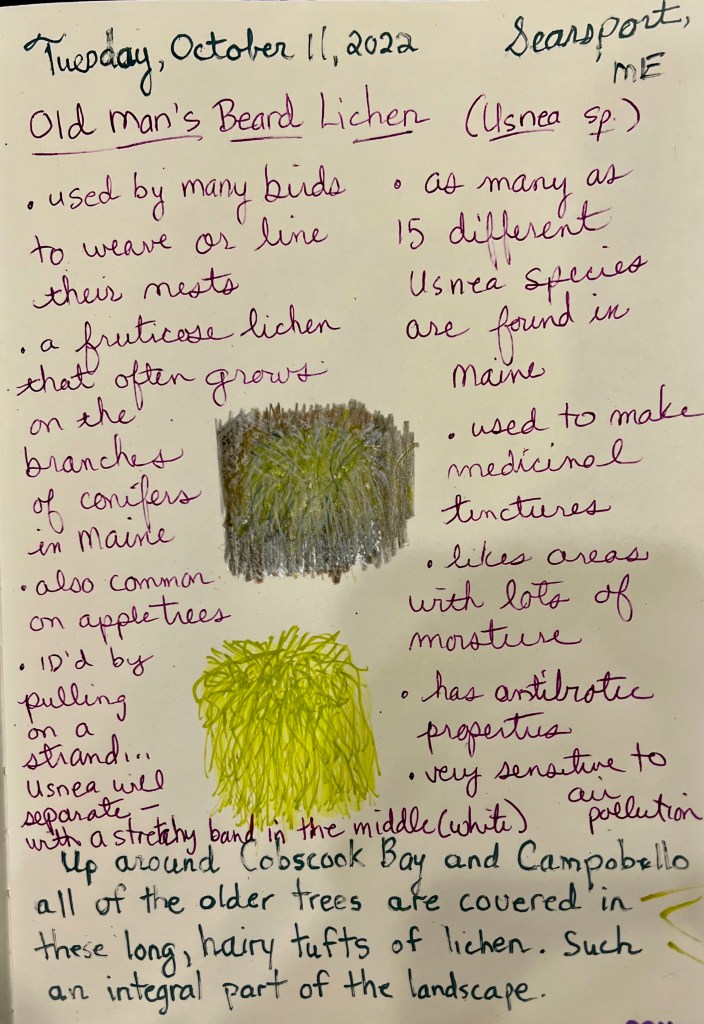 Tuesday, October 11, 2022
Searsport,
ME
Old Man's Beard Lichen (Usnea sp.)
• used by many birds
to weave or line
their nests
• a fruticose lichen
that often grows
on the
branches
of conifers
in Maine
• also common
on apple trees
• ID'd by
pulling
on a
strand...
Usnea will
separate –
with a stretchy band in the middle (white)
• as many as
15 different
Usnea species
are found in
Maine
• used to make
medicinal
tinctures
• likes areas
with lots of
moisture
• has antibiotic
properties
• very sensitive to
air
pollution
Up around Cobscook Bay and Campobello
all of the older trees are covered in
these long, hairy tufts of lichen. Such
an integral part of the landscape.